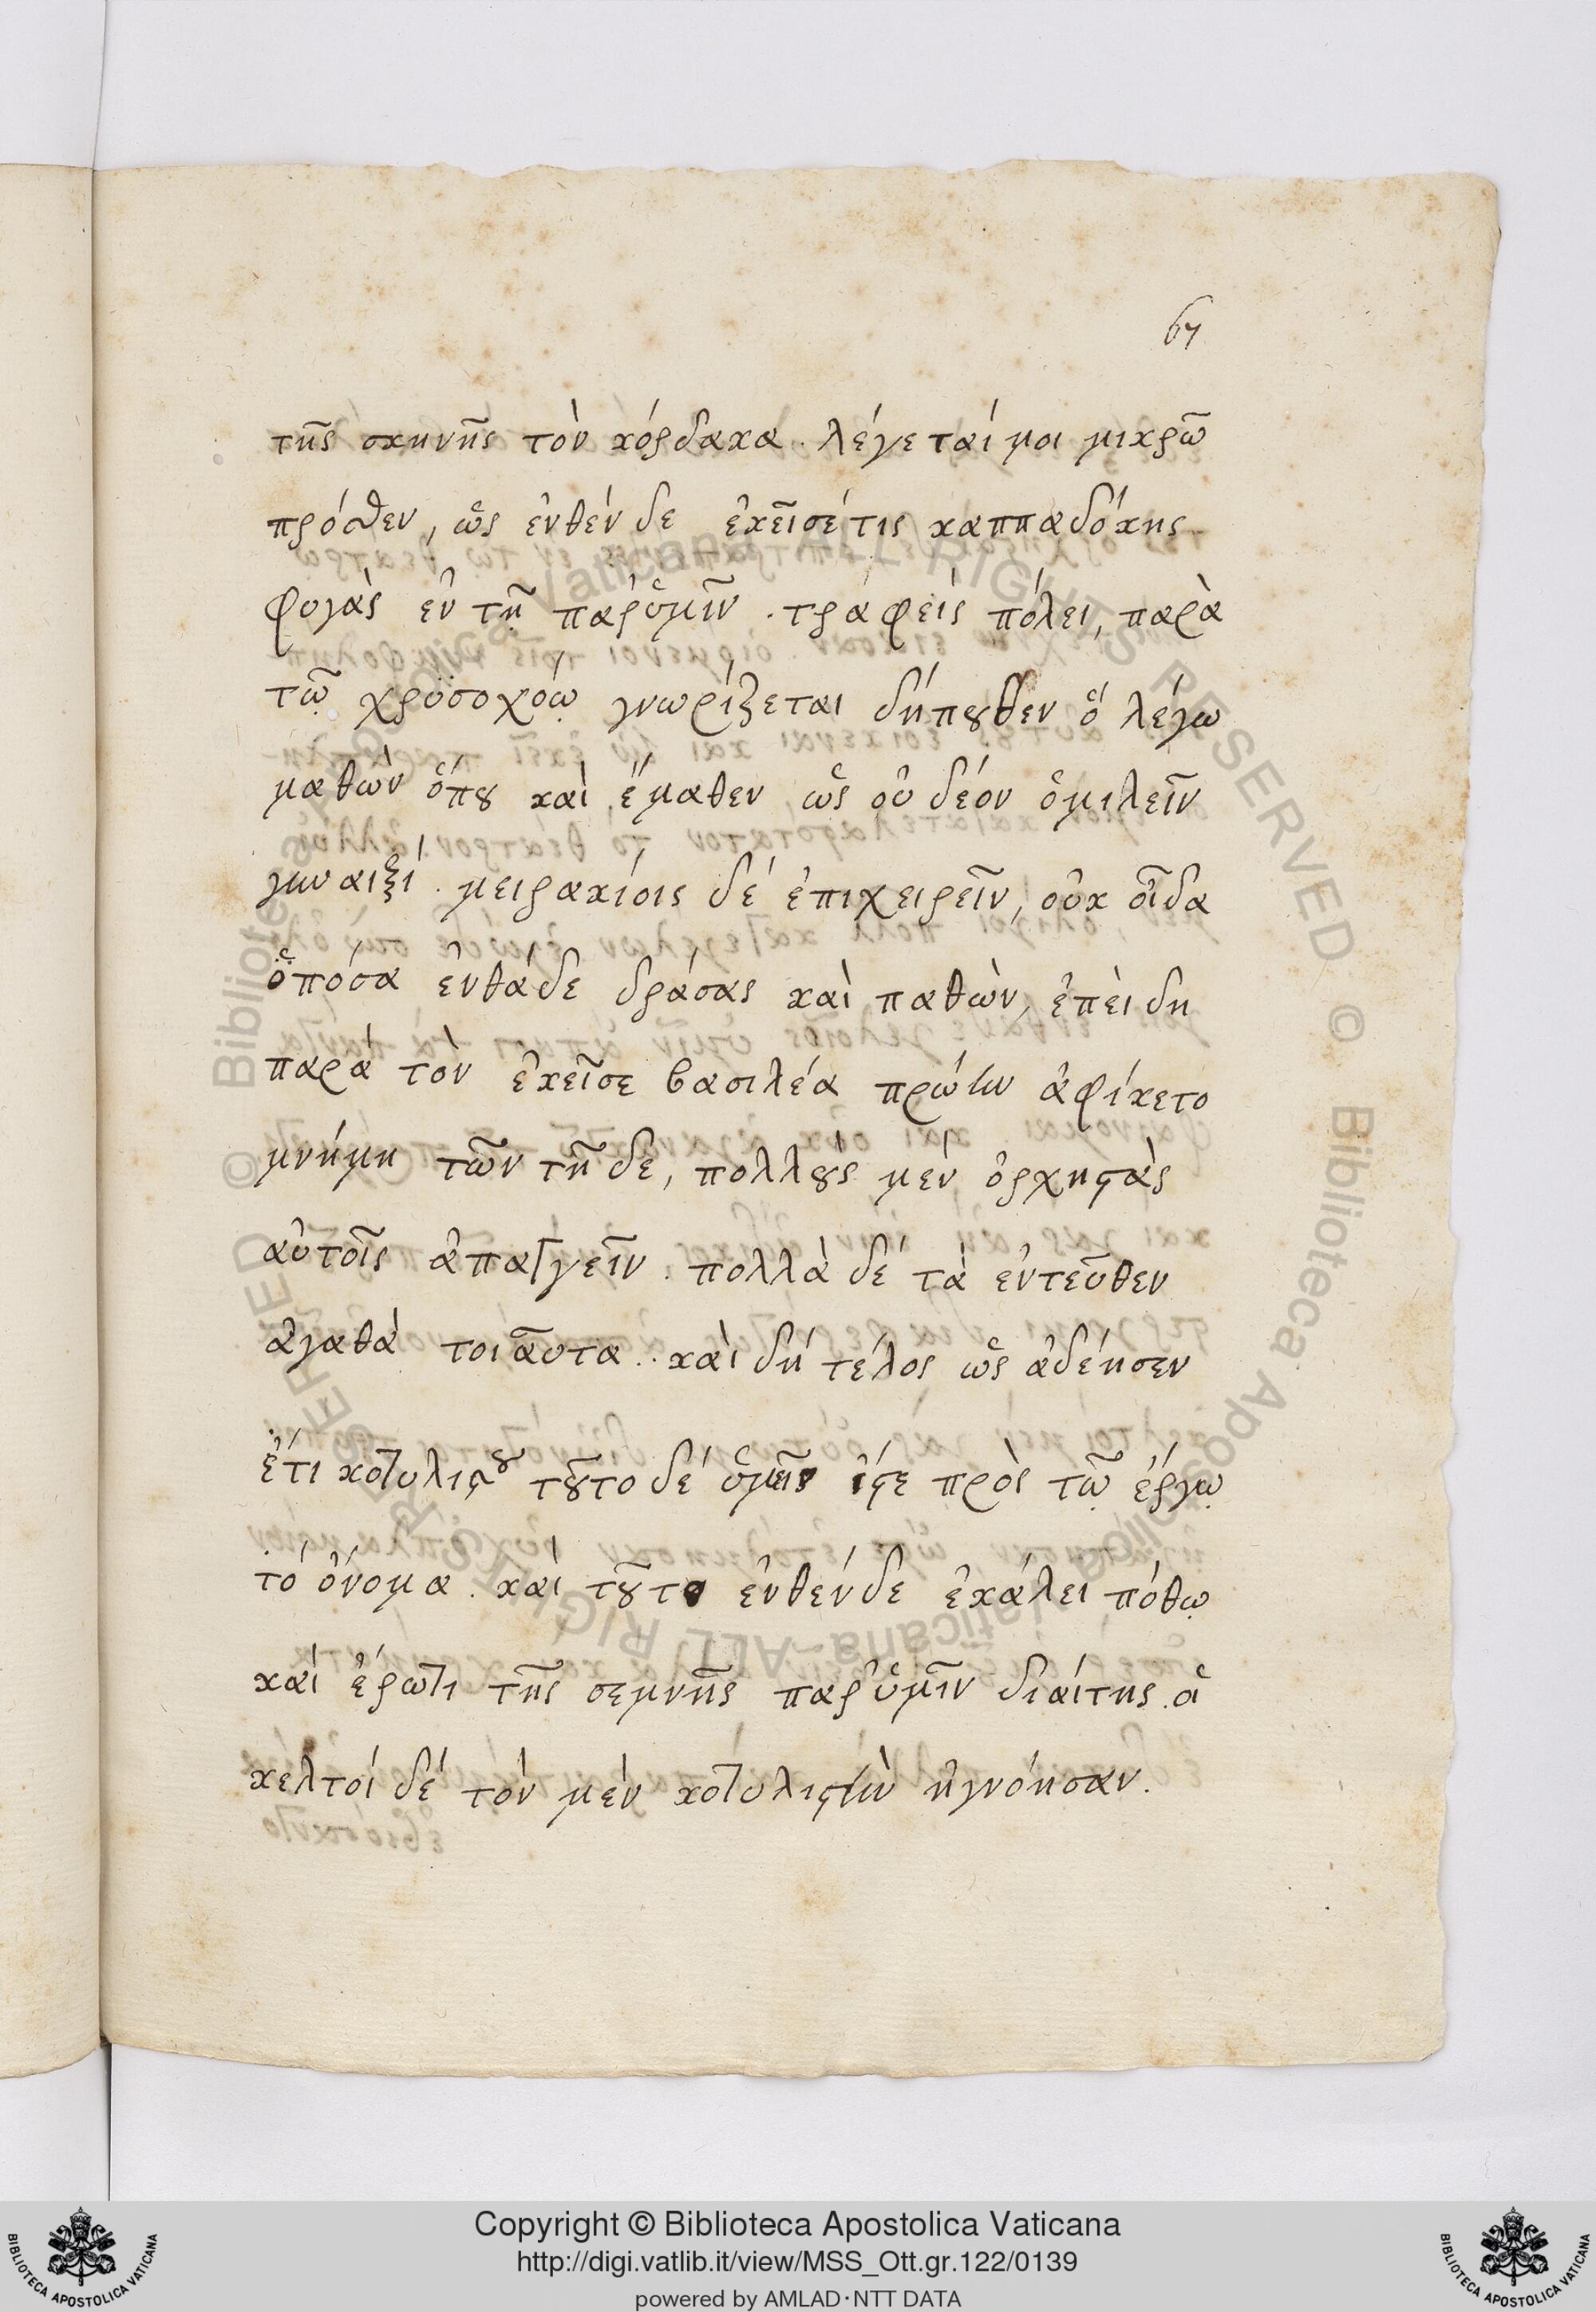 67
τῆς σκηνῆς τὸν κόρδακα. λέγεταί μοι μικρῶ
πρόσθεν, ὡς ἐνθένδε ἐκεῖσέ τις καππαδόκης
φυγὰς ἐν τῇ παρ' ὑμῖν. τραφεὶς πόλει, παρὰ
τῷ χρϋσοχόῳ γνωρίζεται δήπουθεν ὅ λέγω
μαθὼν ὅπου καὶ ἔμαθεν, ὡς οὐ δέον ὁμιλεῖν
γυναιξί. μειρακίοις δέ ἐπιχειρεῖν, οὐκ οἶδα
ὁπόσα ἐνθάδε δράσας καὶ παθὼν, ἐπὲι δη
παρὰ τὸν ἐκεῖσε βασιλέα πρώην ἀφίκετο
μνήμη τῶν τῆ δε, πολλοὺς μὲν ὀρχηστὰς
αὐτοῖς ἀπαγγεῖν. πολλὰ δέ τὰ ἐντεῦθεν
ἀγαθὰ τοιᾶυτα.. κὰι δή τέλος ὡς ἀδέησεν
ἔτι κοτυλιστοῦ τοῦτο δέ ὑμεῖς ἴστε πρὸς τῷ ἔργῳ
τό ὄνομα. κὰι τοῦτο ἐνθένδε ἐκάλει πόθῳ
κάι ἔρωτι τῆς σεμνῆς παρ' ὑμῖν διάιτης. ὁι
κελτοί δέ τὸν μὲν κοτυλιστὴν ἠγνόησαν.
Copyright © Biblioteca Apostolica Vaticana
http://digi.vatlib.it/view/MSS_Ott.gr.122/0139
powered by AMLAD·NTT DATA
BIBLIOTECA APOSTOLICA VATICANA
BIBLIOTECA APOSTOLICA VATICANA